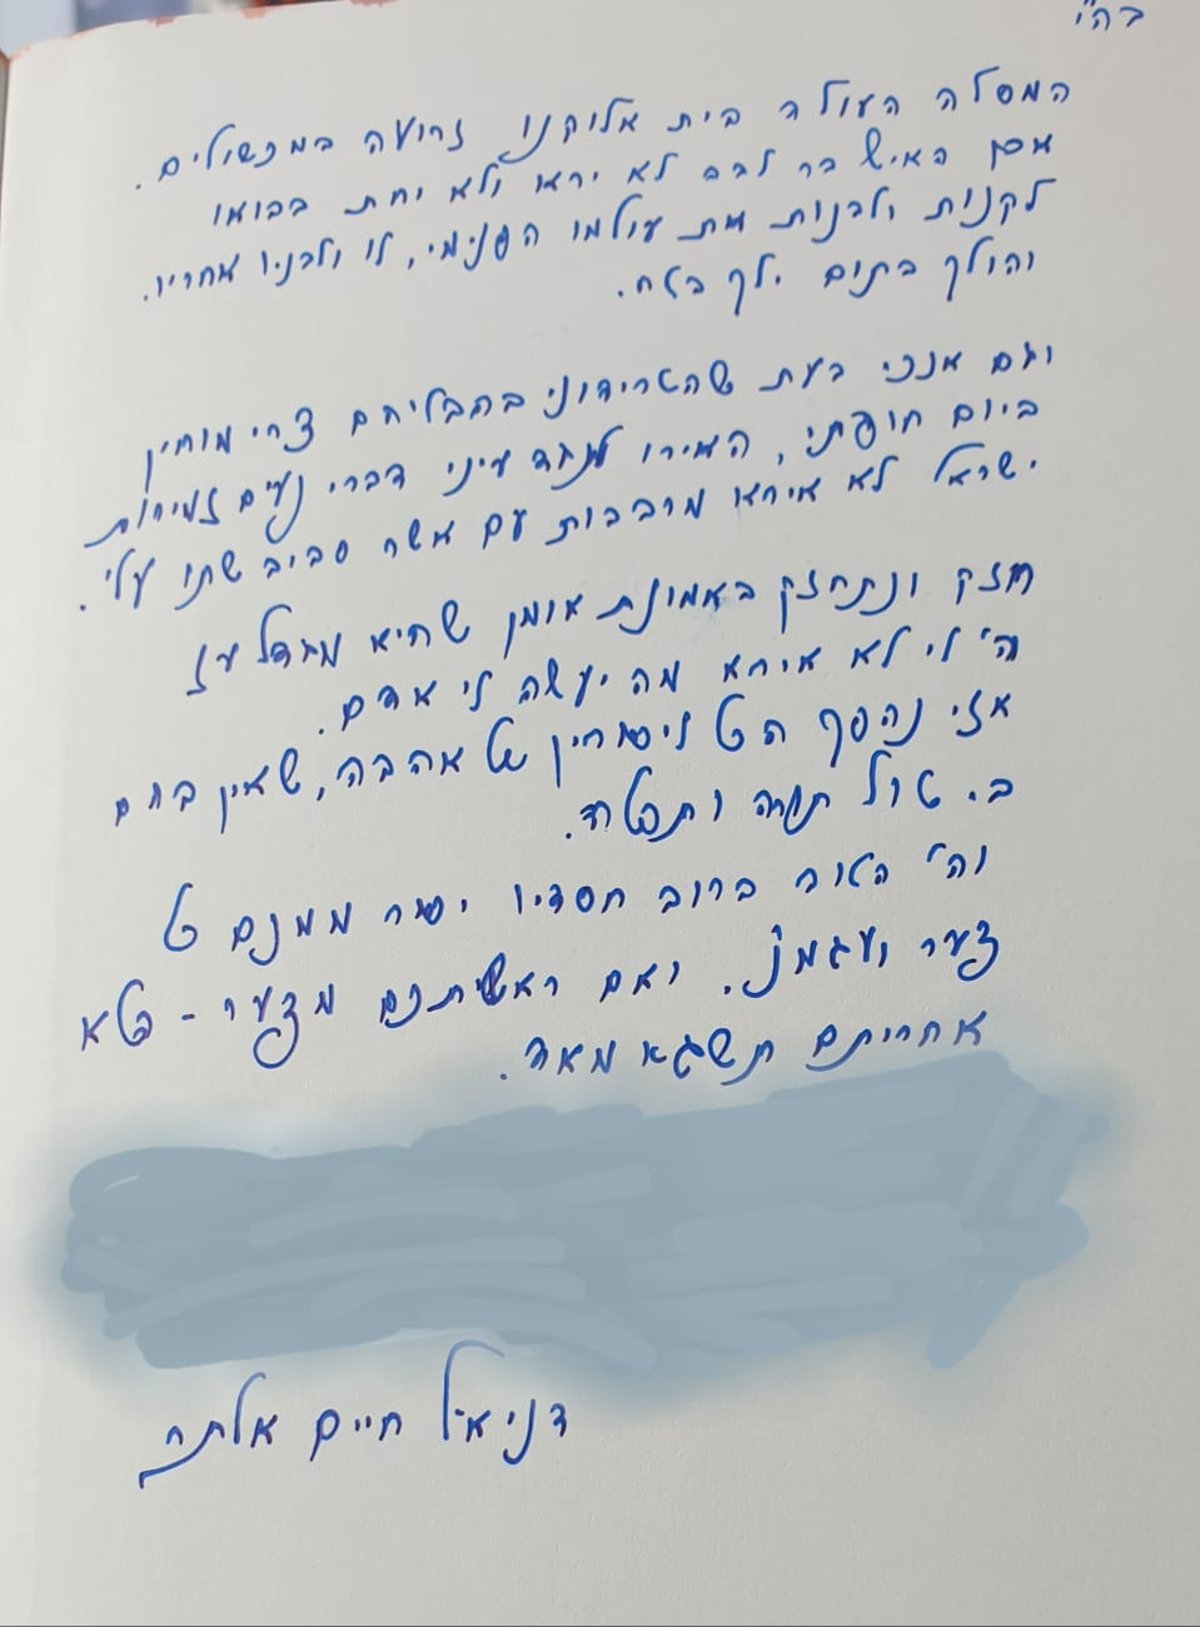 בה"י
המסלה העולה בית אלוקנו זרועה במכשולים.
אכן האיש בר לבב לא ירא ולא יחת בבואו
לקנות ולבנות את עולמו הפנימי, לו ולבניו אחריו.
והולך בתום ילך בטח.
וגם אנכי בעת שהטרידוני בהבליהם צרי מוחין
ביום חופתי, האירו לנגד עיני דברי נעים זמירות
ישראל לא אירא מרבבות עם אשר סביב שתו עלי.
חזק ונתחזק באמונת אומן שהיא מגדל עז
ה' לי לא אירא מה יעשה לי אדם.
אזי נהפך הכל ליסורין של אהבה, שאין בהם
ביטול תורה ותפילה.
וה' הטוב ברוב חסדיו יסיר ממנכם כל
צער ועגמ"נ. ואם ראשיתכם מצער - מלא
אחריתם תשגא מאד.
דניאל חיים אלתר